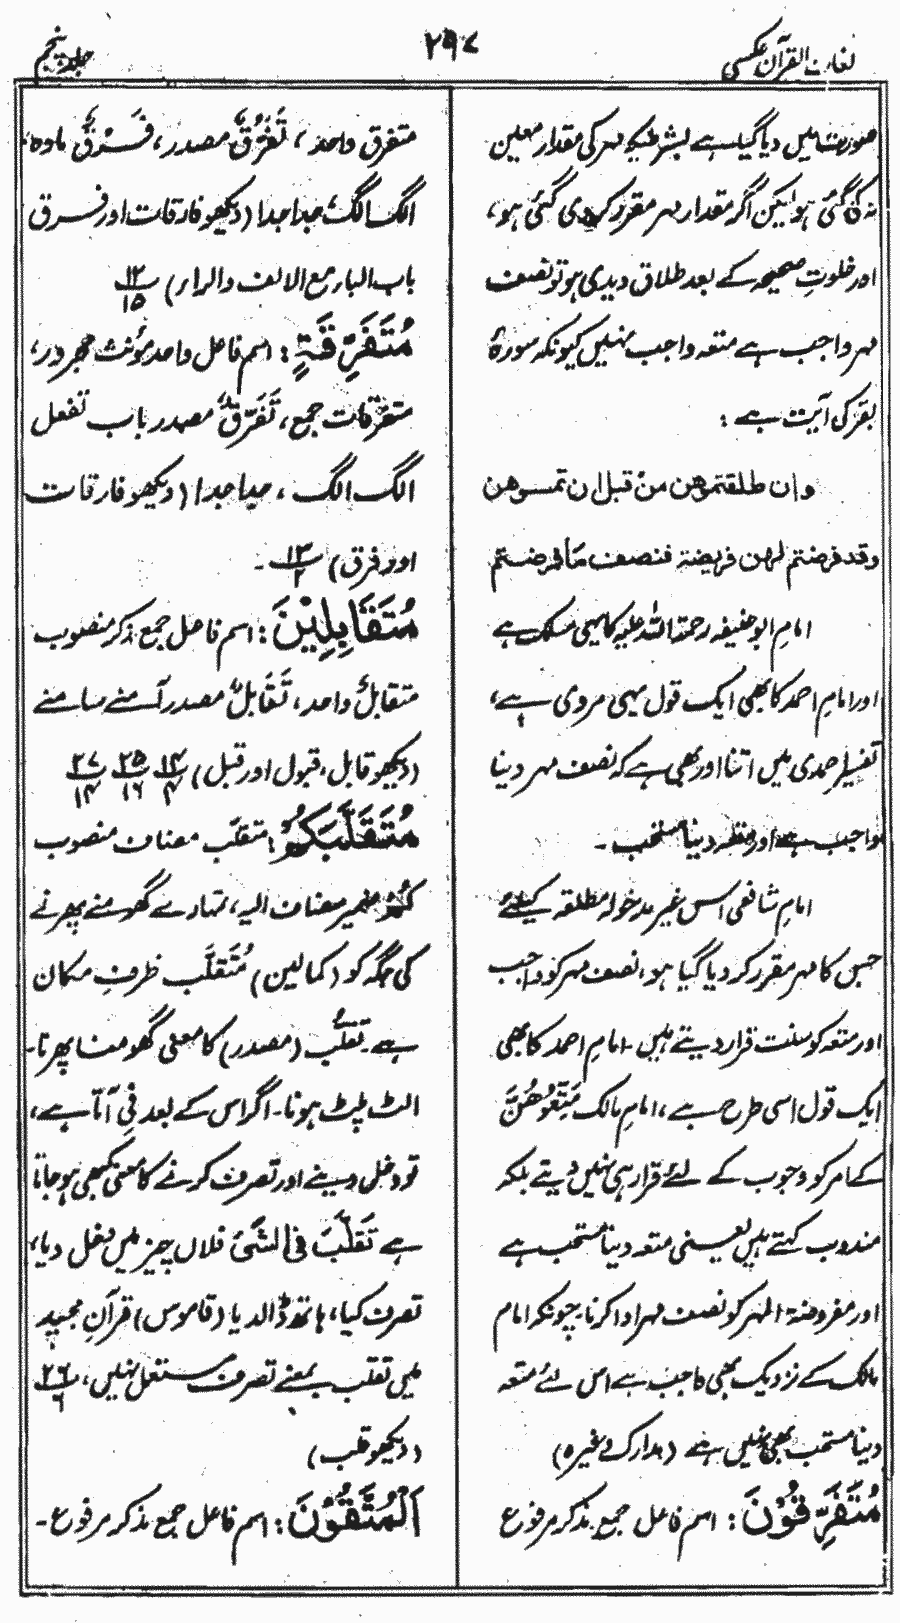 لغات القرآن عکسی
۲۹۷
جلد پنجم
صورت میں دیا گیا ہے بشرطیکہ مہر کی مقدار معین
نہ کی گئی ہو لیکن اگر مقدار مہر مقرر کر دی گئی ہو،
اور خلوتِ صحیحہ کے بعد طلاق دیدی ہو تو نصف
مہر واجب ہے متعہ واجب نہیں کیونکہ سورۂ
بقر کی آیت ہے :
وان طلقتموهن من قبل ان تمسوهن
وقد فرضتم لهن فريضة فنصف ما فرضتم
امامِ ابو حنیفہ رحمۃ اللہ علیہ کا یہی مسلک ہے
اور امامِ احمد کا بھی ایک قول یہی مروی ہے،
تفسیر احمدی میں اتنا اور بھی ہے کہ نصف مہر دینا
واجب ہے اور متعہ دینا مستحب ۔
امامِ شافعی اس غیر مدخولہ مطلقہ کیلئے
جس کا مہر مقرر کر دیا گیا ہو، نصف مہر کو واجب
اور متعہ کو سنت قرار دیتے ہیں۔ امامِ احمد کا بھی
ایک قول اسی طرح ہے، امامِ مالک مَتِّعُوْهُنَّ
کے امر کو وجوب کے لئے قرار ہی نہیں دیتے بلکہ
مندوب کہتے ہیں یعنی متعہ دینا مستحب ہے
اور مفروضۃ المہر کو نصف مہر ادا کرنا۔ چونکہ امام
مالک کے نزدیک بھی واجب ہے اس لئے متعہ
دینا مستحب بھی نہیں ہے (مدارک وغیرہ)
مُتَفَرِّقُوْنَ : اسم فاعل جمع مذکر مرفوع
متفرق واحد، تَفَرُّقٌ مصدر، فَرْقٌ مادہ،
الگ الگ، جدا جدا (دیکھو فارقات اور فرق
باب الباء مع الالف والراء) ۱۲/۱۵
مُتَفَرِّقَةٍ : اسم فاعل واحد مؤنث مجرور،
متفرقات جمع، تَفَرُّقٌ مصدر باب تفعل
الگ الگ، جدا جدا (دیکھو فارقات
اور فرق) ۱۳/۲ ۔
مُتَقَابِلِيْنَ : اسم فاعل جمع مذکر منصوب
متقابلٌ واحد، تَقَابُلٌ مصدر آمنے سامنے
(دیکھو قابل، قبول اور قبل) ۱۴/۴ ۲۵/۱۶ ۲۷/۱۴
مُتَقَلَّبَكُمْ : متقلَّب مضاف منصوب
كُمْ ضمیر مضاف الیہ، تمہارے گھومنے پھرنے
کی جگہ کو (کمالین) مُتَقَلَّب ظرفِ مکان
ہے تقلُّب (مصدر) کا معنی گھومنا پھرنا۔
الٹ پلٹ ہونا۔ اگر اس کے بعد فِی آتا ہے،
تو دخل دینے اور تصرف کرنے کا معنی بھی ہو جاتا
ہے تَقَلَّبَ فِی الشَّیْءِ فلاں چیز میں دخل دیا،
تصرف کیا، ہاتھ ڈالدیا (قاموس) قرآنِ مجید
میں تقلب بمعنے تصرف مستعمل نہیں، ۲۶/۶
(دیکھو قلب)
اَلْمُتَّقُوْنَ : اسم فاعل جمع مذکر مرفوع۔